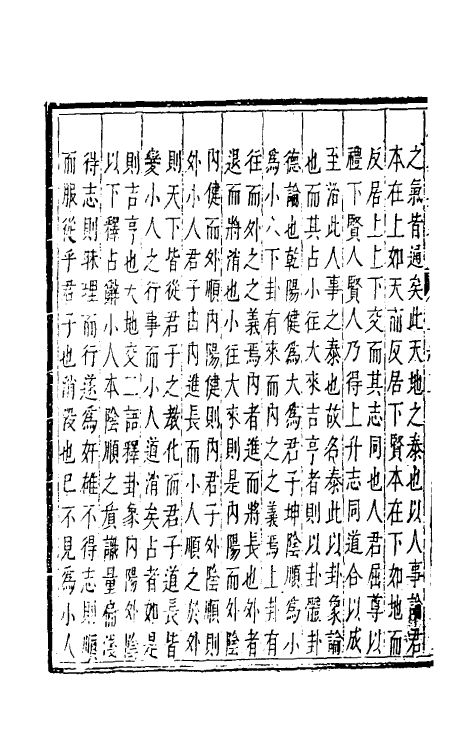 之氣皆通矣此天地之泰也以人事論君
本在上如天而反居下賢本在下如地而
反居上上下交而其志同也人君屈尊以
禮下賢人賢人乃得上升志同道合以成
至治此人事之泰也故名泰此以卦象論
也而其占小往大來吉亨者則以卦體卦
德論也乾陽健為大為君子坤陰順為小
為小人下卦有來而內之之義焉上卦有
往而外之之義焉內者進而將長也外者
退而將消也小往大來則是內陽而外陰
內健而外順內陽健則內君子外陰順則
外小人君子內進長而小人順之於外
則天下皆從君子之教化而君子道長皆
變小人之行事而小人道消矣占者如是
則吉亨也天地交二語釋卦象內陽外陰
以下釋占辭小人本陰順之質識量偏淺
得志則誅理而行遂為奸雄不得志則順
而服從乎君子也消沒也巳不見為小人